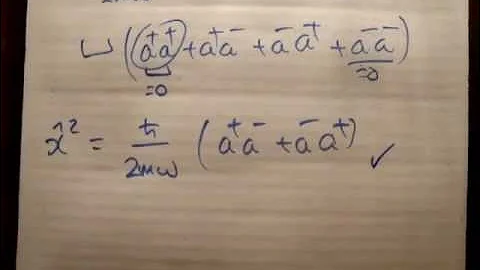 ⊔ (a⁺a⁺ + a⁺a⁻ + a⁻a⁺ + a⁻a⁻)
=0 =0
x̂² = ħ/2mω (a⁺a⁻ + a⁻a⁺) ✓